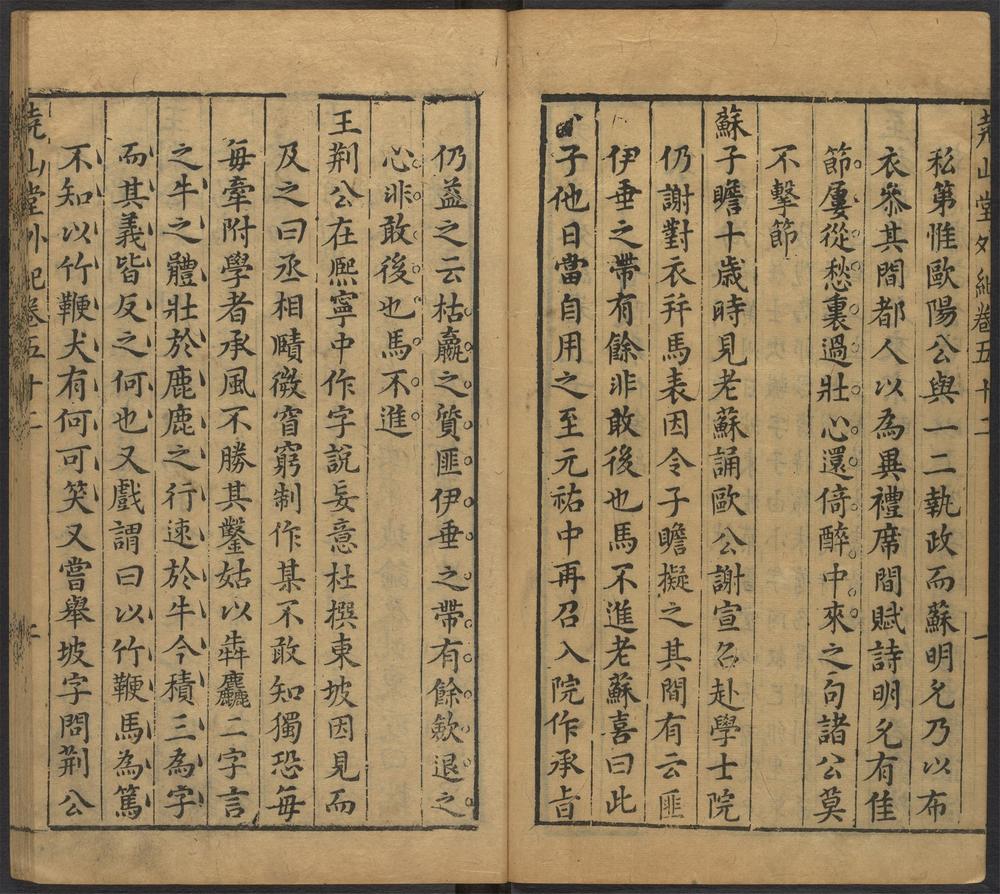 堯山堂外紀卷五十二 一
私第惟歐陽公與一二執政而蘇明允乃以布
衣叅其間都人以為異禮席間賦詩明允有佳
節屢從愁裏過壯心還倚醉中來之句諸公莫
不擊節
蘇子瞻十歲時見老蘇誦歐公謝宣召赴學士院
仍謝對衣幷馬表因令子瞻擬之其間有云匪
伊垂之帶有餘非敢後也馬不進老蘇喜曰此
子他日當自用之至元祐中再召入院作承旨
仍益之云枯羸之質匪伊垂之帶有餘歛退之
心非敢後也馬不進
王荆公在熈寧中作字說妄意杜撰東坡因見而
及之曰丞相賾微窅窮制作某不敢知獨恐每
每牽附學者承風不勝其鑿姑以犇麤二字言
之牛之體壯於鹿鹿之行速於牛今積三為字
而其義皆反之何也又戲謂曰以竹鞭馬為篤
不知以竹鞭犬有何可笑又嘗舉坡字問荆公
堯山堂外紀卷五十二